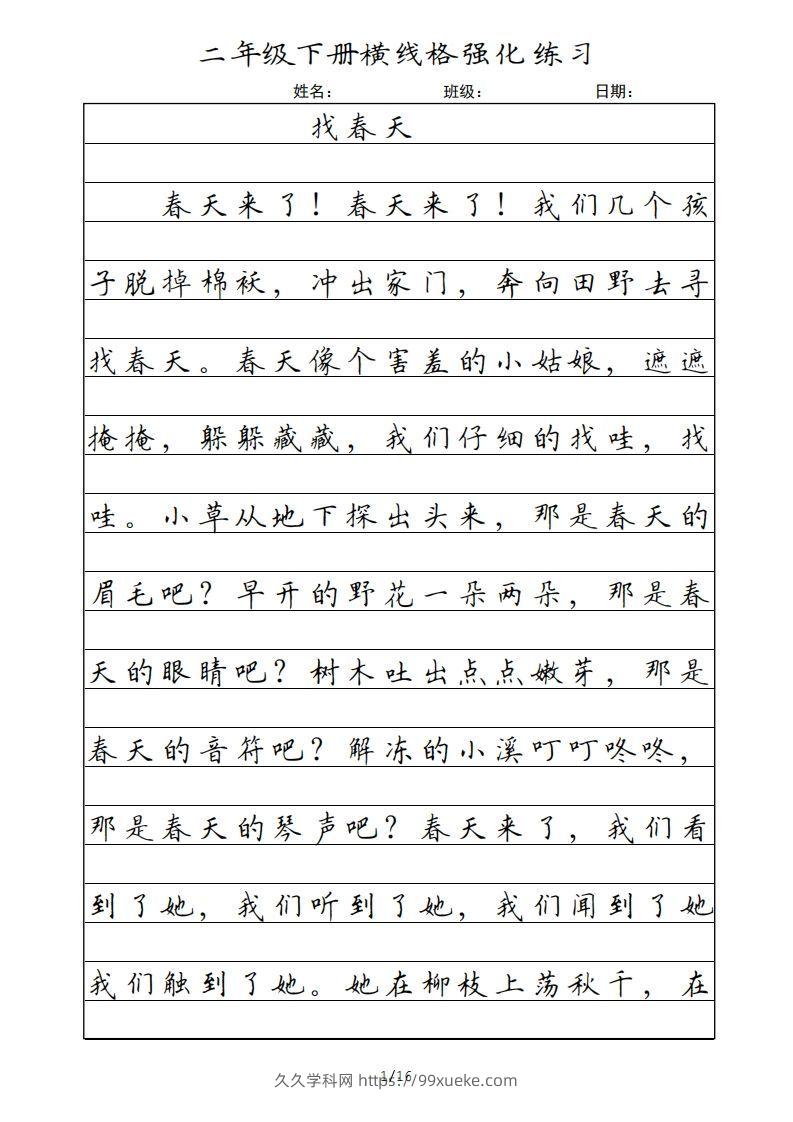 二年级下册横线格强化练习
姓名： 班级： 日期：
找春天
春天来了！春天来了！我们几个孩
子脱掉棉袄，冲出家门，奔向田野去寻
找春天。春天像个害羞的小姑娘，遮遮
掩掩，躲躲藏藏，我们仔细的找哇，找
哇。小草从地下探出头来，那是春天的
眉毛吧？早开的野花一朵两朵，那是春
天的眼睛吧？树木吐出点点嫩芽，那是
春天的音符吧？解冻的小溪叮叮咚咚，
那是春天的琴声吧？春天来了，我们看
到了她，我们听到了她，我们闻到了她
我们触到了她。她在柳枝上荡秋千，在
1/16
久久学科网 https://99xueke.com